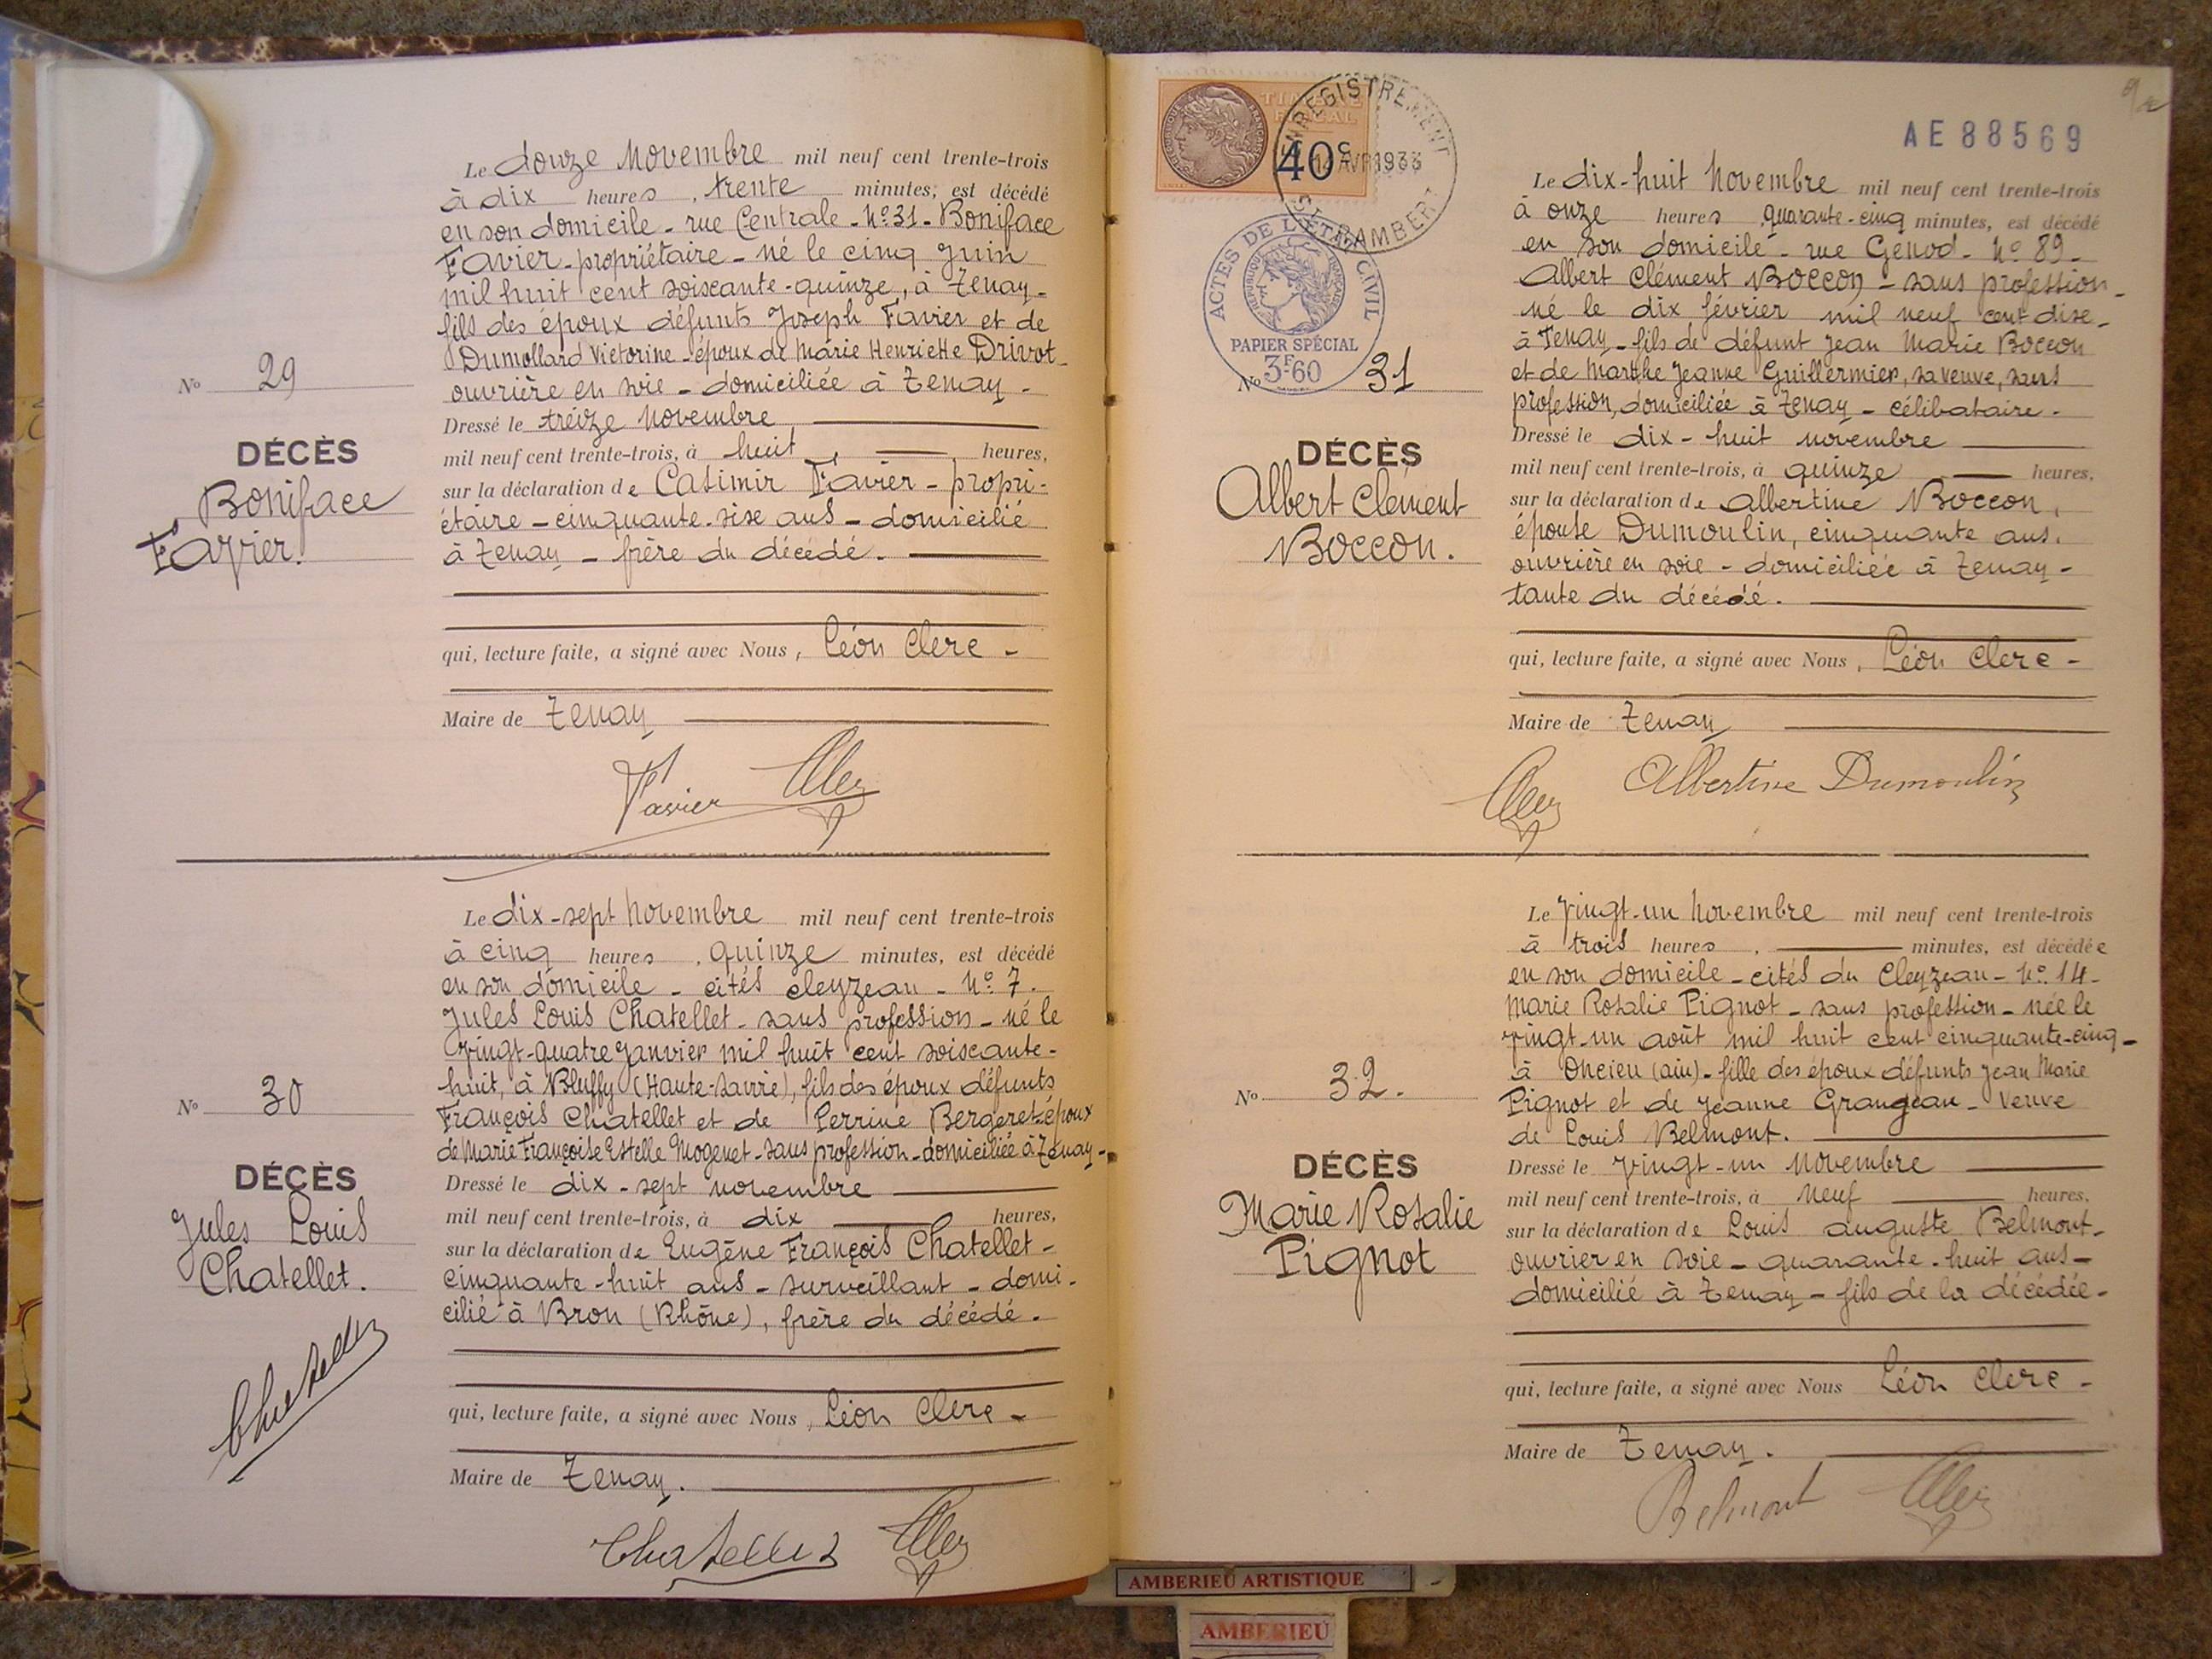 Le douze Novembre mil neuf cent trente-trois
à dix heures, trente minutes, est décédé
en son domicile - rue Centrale - N° 31 - Boniface
Favier - propriétaire - né le cinq Juin
mil huit cent soixante-quinze, à Tenay -
fils des époux défunts Joseph Favier et de
Dumollard Victorine - époux de Marie Henriette Drivot -
ouvrière en soie - domiciliée à Tenay -
Dressé le treize Novembre
mil neuf cent trente-trois, à huit heures,
sur la déclaration de Casimir Favier - propri-
étaire - cinquante-six ans - domicilié
à Tenay - frère du décédé.
qui, lecture faite, a signé avec Nous, Léon Clerc -
Maire de Tenay
Favier
N° 29
DÉCÈS
Boniface
Favier.
Le dix-sept Novembre mil neuf cent trente-trois
à cinq heures, quinze minutes, est décédé
en son domicile - cités Cleyzeau - N° 7.
Jules Louis Chatellet - sans profession - né le
vingt-quatre Janvier mil huit cent soixante-
huit, à Bluffy (Haute-Savoie), fils des époux défunts
François Chatellet et de Perrine Bergeret - époux
de Marie Françoise Estelle Mogenet - sans profession - domiciliée à Tenay -
Dressé le dix-sept novembre
mil neuf cent trente-trois, à dix heures,
sur la déclaration de Eugène François Chatellet -
cinquante-huit ans - surveillant - domi-
cilié à Bron (Rhône), frère du décédé.
qui, lecture faite, a signé avec Nous, Léon Clerc -
Maire de Tenay.
Chatellet
N° 30
DÉCÈS
Jules Louis
Chatellet.
Chatellet
TIMBRE
FISCAL
40c
ENREGISTREMENT
AVR 1933
ST RAMBERT
ACTES DE L'ÉTAT CIVIL
RÉPUBLIQUE FRANÇAISE
PAPIER SPÉCIAL
3F60
AE 88569
Le dix-huit Novembre mil neuf cent trente-trois
à onze heures quarante-cinq minutes, est décédé
en son domicile - rue Genod - N° 89 -
Albert Clément Boccon - sans profession -
né le dix février mil neuf cent dix -
à Tenay - fils de défunt Jean Marie Boccon
et de Marthe Jeanne Guillermier, sa veuve, sans
profession, domiciliée à Tenay - célibataire.
Dressé le dix-huit novembre
mil neuf cent trente-trois, à quinze heures,
sur la déclaration de Albertine Boccon,
épouse Dumoulin, cinquante ans,
ouvrière en soie - domiciliée à Tenay -
tante du décédé.
qui, lecture faite, a signé avec Nous, Léon Clerc -
Maire de Tenay
Albertine Dumoulin
N° 31
DÉCÈS
Albert Clément
Boccon.
Le vingt-un Novembre mil neuf cent trente-trois
à trois heures, minutes, est décédée
en son domicile - cités du Cleyzeau - N° 14 -
Marie Rosalie Pignot - sans profession - née le
vingt-un août mil huit cent cinquante-cinq -
à Oncieu (Ain) - fille des époux défunts Jean Marie
Pignot et de Jeanne Grangean - Veuve
de Louis Belmont.
Dressé le vingt-un Novembre
mil neuf cent trente-trois, à neuf heures,
sur la déclaration de Louis Auguste Belmont -
ouvrier en soie - quarante-huit ans -
domicilié à Tenay - fils de la décédée -
qui, lecture faite, a signé avec Nous Léon Clerc -
Maire de Tenay.
Belmont
N° 32.
DÉCÈS
Marie Rosalie
Pignot
AMBERIEU ARTISTIQUE
AMBERIEU